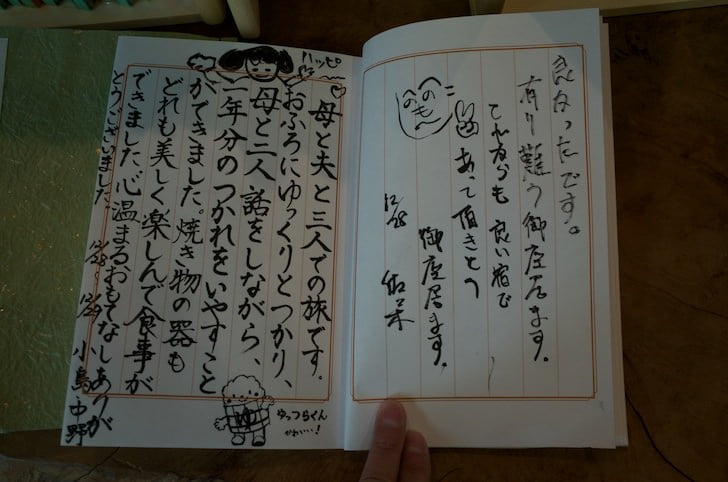 有り難う御座居ます。
これからも良い宿で
あって頂きとう
御座居ます。
12/28 佐々木
ハッピー
母と夫と三人での旅です。
おふろにゆっくりとつかり、
母と二人話をしながら、
一年分のつかれをいやすこと
ができました。焼き物の器も
どれも美しく楽しんで食事が
できました。心温まるおもてなしありが
とうございました。
12/28〜12/29 小島・中野
ゆ
ゆっつらくん
かわいい!